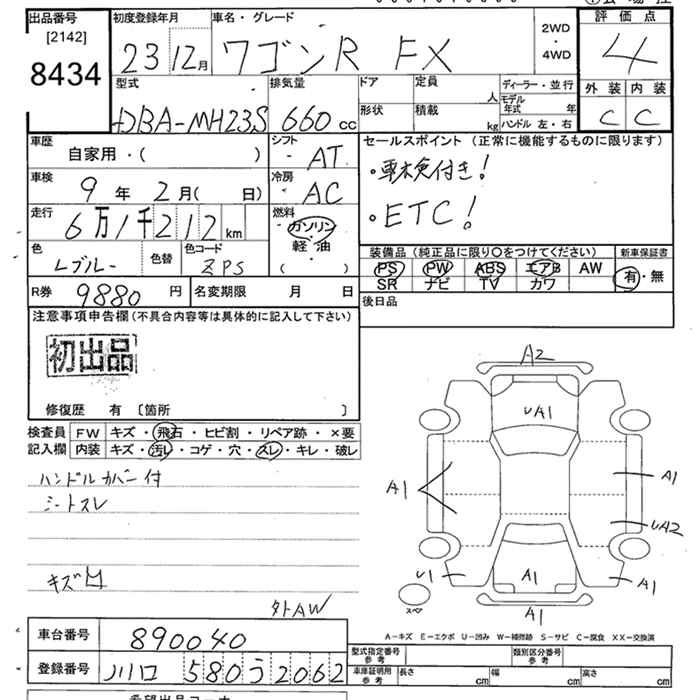 出品番号 初度登録年月 車名・グレード 2WD・4WD 評価点
[2142] 8434 23 12月 ワゴンR FX 4
型式 排気量 ドア 定員 人 ディーラー・並行 外装 内装
DBA-MH23S 660cc 形状 積載 kg モデル年式 年 ハンドル 左・右 C C
車歴 自家用・( ) シフト AT セールスポイント (正常に機能するものに限ります)
・車検付き!
車検 9年 2月( 日) 冷房 AC
・ETC!
走行 6万1千212km 燃料 ガソリン・軽油 ( )
色 Lブルー 色替 色コード ZPS
装備品 (純正品に限り○をつけてください) 新車保証書
PS PW ABS エアB AW 有・無
SR ナビ TV カワ
R券 9880円 名変期限 月 日 後日品
注意事項申告欄(不具合内容等は具体的に記入して下さい)
初出品
修復歴 有 〔箇所 〕
検査員記入欄 FW キズ・飛石・ヒビ割・リペア跡・×要
内装 キズ・汚れ・コゲ・穴・スレ・キレ・破レ
ハンドルカバー付
シートスレ
キズ凹
外AW
A2
UA1
A1 A1
UA2
U1 A1 A1
スペア
A1
A-キズ E-エクボ U-凹み W-補修跡 S-サビ C-腐食 XX-交換済
車台番号 890040
型式指定番号 参考 類別区分番号 参考
登録番号 川口 580う2062
車庫証明用 参考 長さ cm 幅 cm 高さ cm